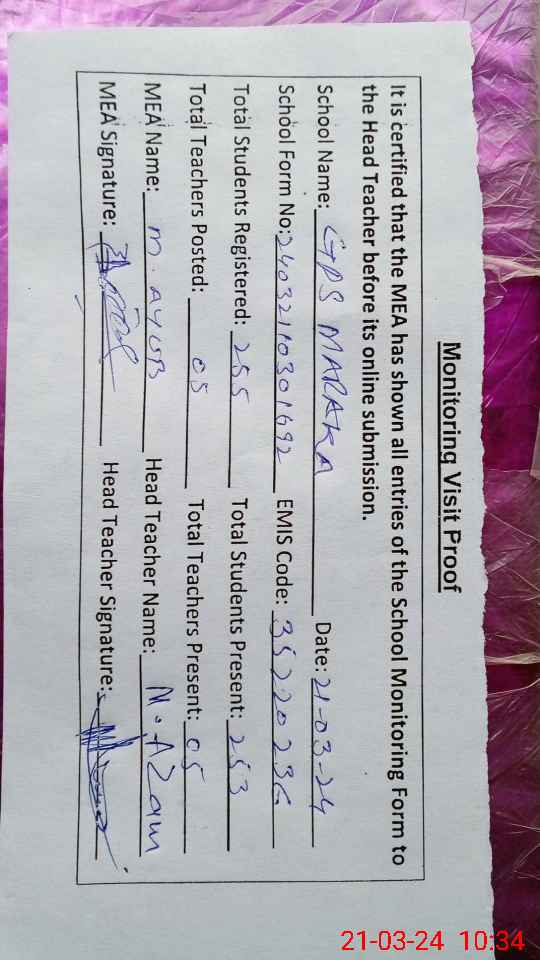 Monitoring Visit Proof
It is certified that the MEA has shown all entries of the School Monitoring Form to
the Head Teacher before its online submission.
School Name: GPS MARAKA Date: 21-03-24
School Form No: 24032110301692 EMIS Code: 35220236
Total Students Registered: 255 Total Students Present: 253
Total Teachers Posted: 05 Total Teachers Present: 05
MEA Name: M. AYUB Head Teacher Name: M. AZam
MEA Signature: Head Teacher Signature:
21-03-24 10:34